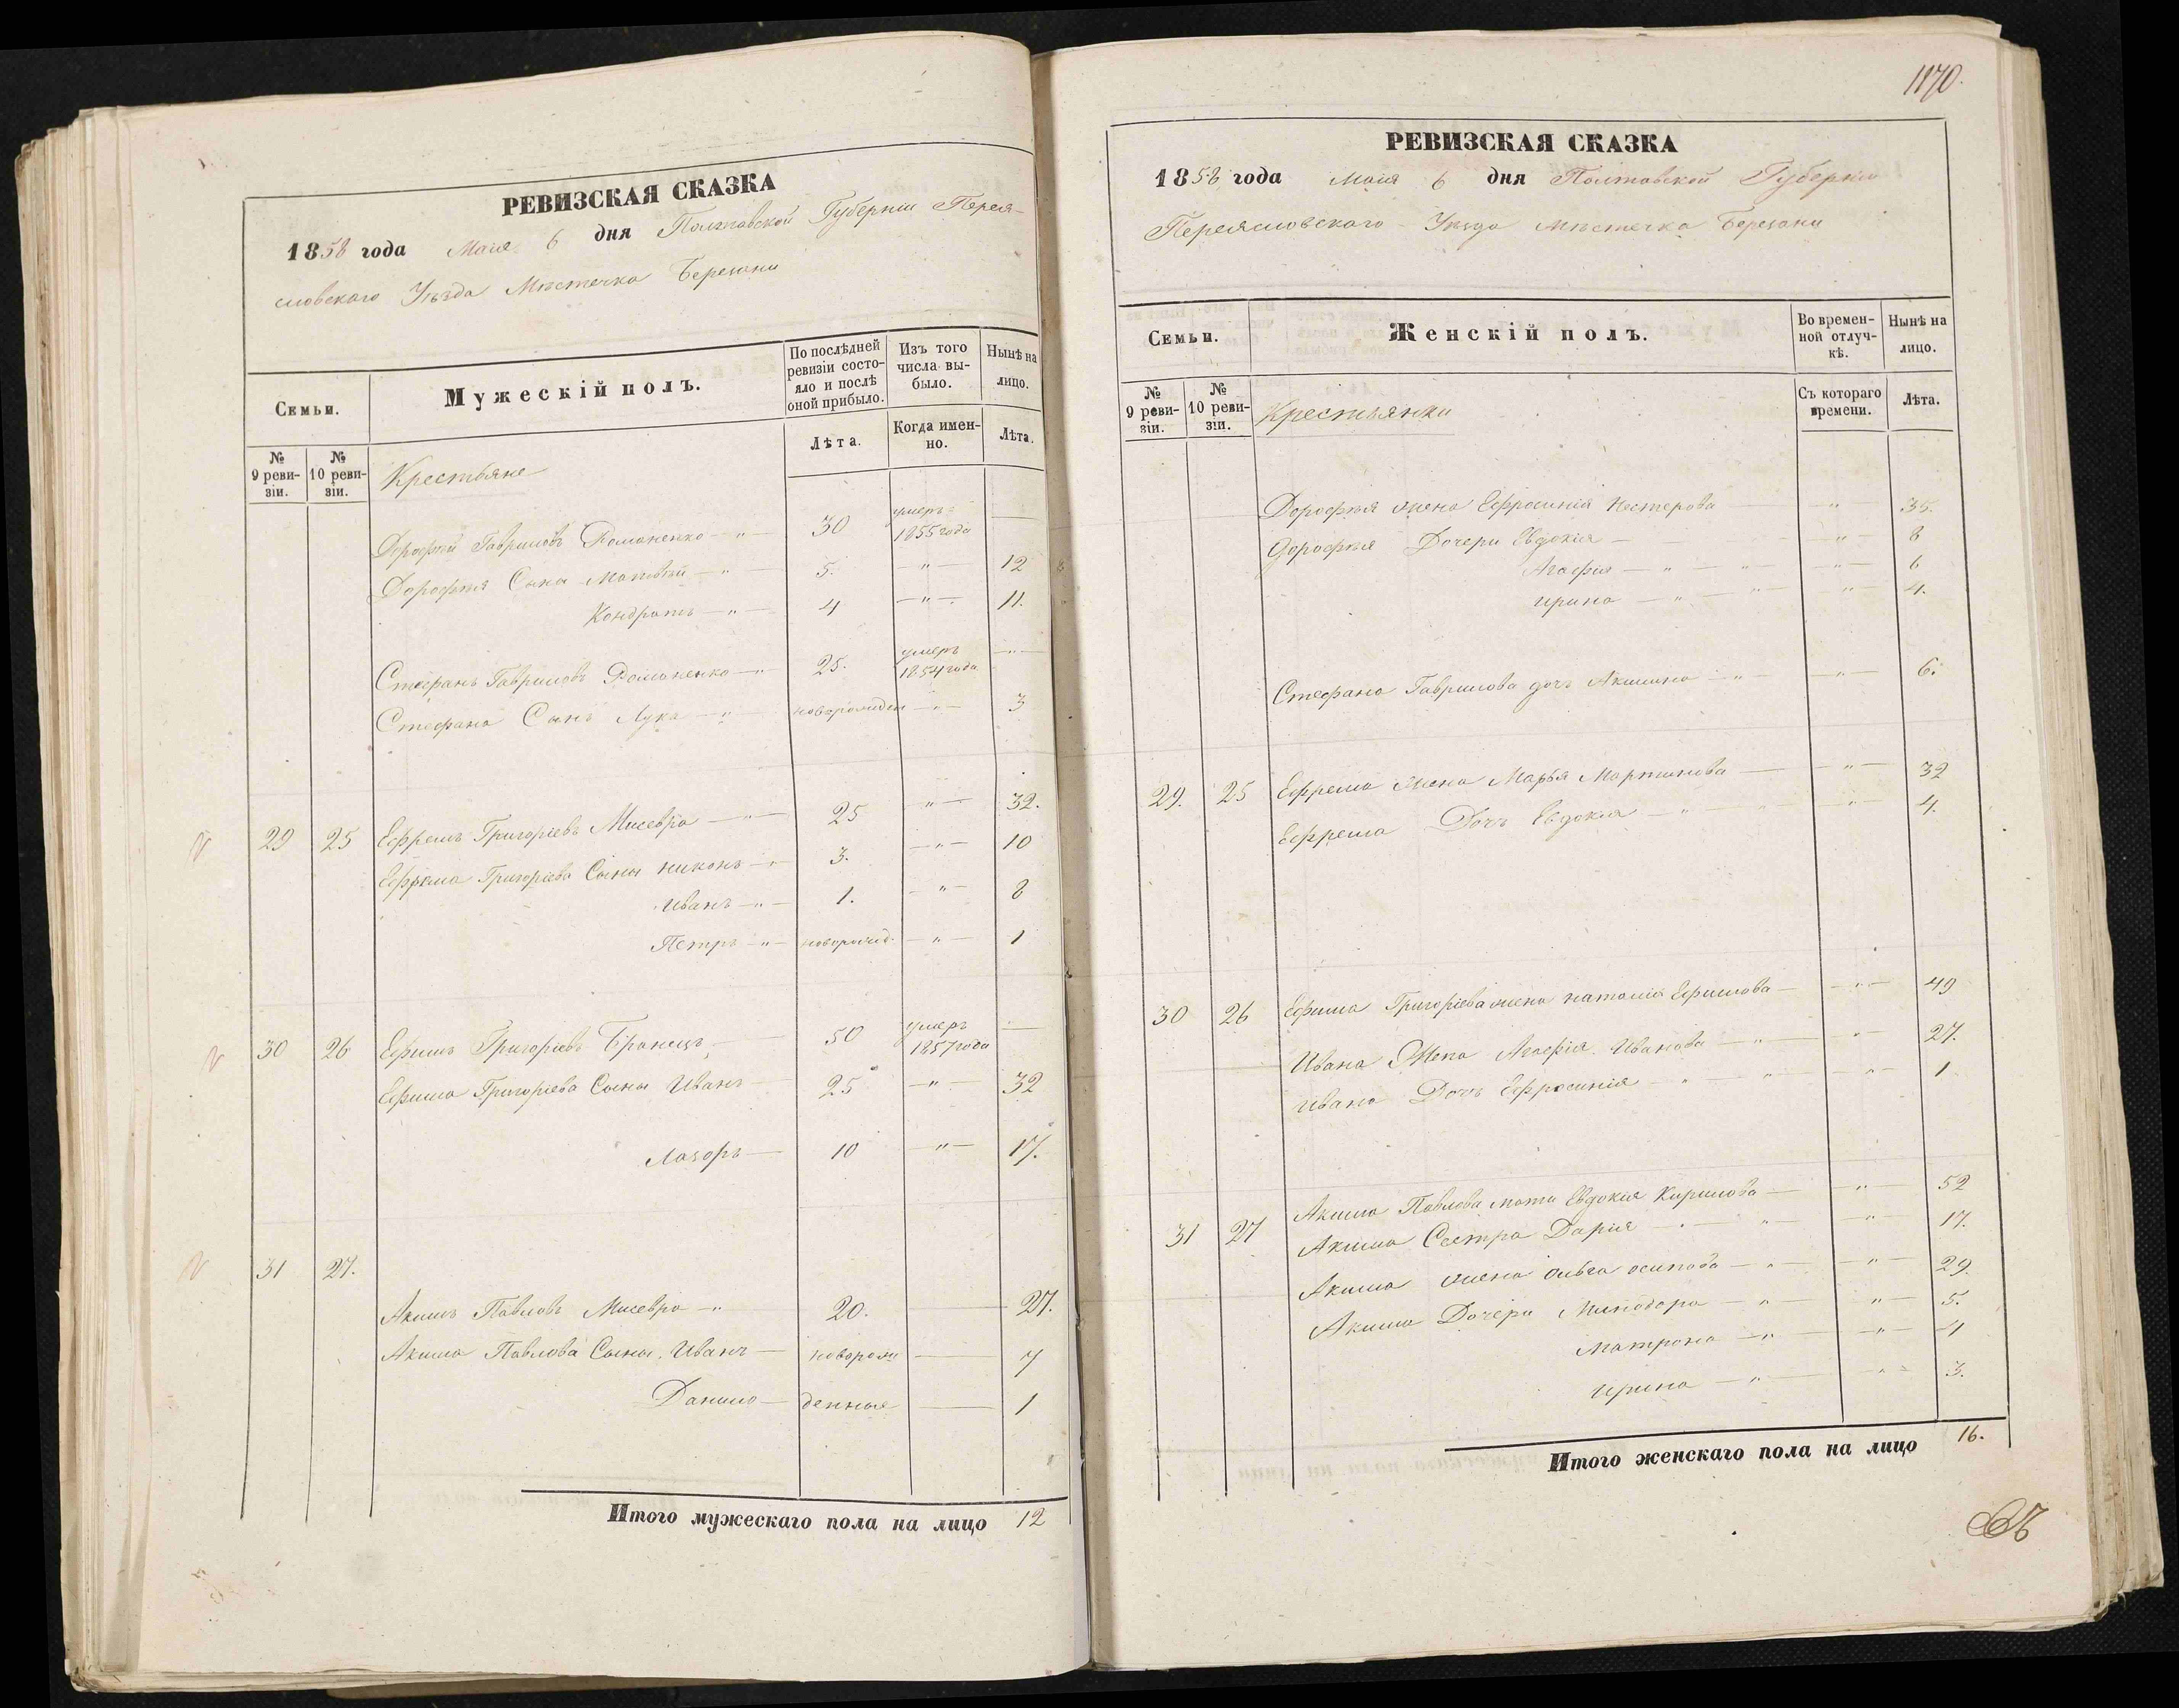 РЕВИЗСКАЯ СКАЗКА
1858 года Маия 6 дня Полтавской Губерніи Перея-
словского Уѣзда Мѣстечка Березани
Семьи.
Мужескій полъ.
По послѣдней ревизіи состо-яло и послѣ оной прибыло.
Изъ того числа вы-было.
Нынѣ на лицо.
Лѣта.
Когда имен-но.
Лѣта.
№ 9 реви-зіи.
№ 10 реви-зіи.
Крестьяне
Дорофей Гавриловъ Романенко — 30 умеръ 1855 года —
Дорофея Сыны Матвѣй — " — 5. — " — 12
Кондратъ — " — 4 — " — 11.
Стефанъ Гавриловъ Романенко — " 25. умеръ 1854 года — " —
Стефана Сынъ Лука — " — новорожден — " — 3
29 25 Ефремъ Григоріевъ Мисевра — " — 25 " — 32.
Ефрема Григоріева Сыны Никонъ — " 3. — " — 10
Иванъ — " — 1. — " — 8
Петръ — " — новорожд. — " — 1
30 26 Ефимъ Григоріевъ Бранецъ — 50 умеръ 1857 года —
Ефима Григоріева Сыны Иванъ — 25 — " — 32
Лазоръ — 10 — " — 17.
31 27.
Акимъ Павловъ Мисевра — " 20. — 27.
Акима Павлова Сыны, Иванъ — новорож — 7
Данило — денные — 1
Итого мужескаго пола на лицо 12
1170.
РЕВИЗСКАЯ СКАЗКА
1858 года Маия 6 дня Полтавской Губерніи
Переясловскаго Уѣзда Мѣстечка Березани
Семьи.
Женскій полъ.
Во времен-ной отлуч-кѣ.
Нынѣ на лицо.
№ 9 реви-зіи.
№ 10 реви-зіи.
Крестьянки
Съ котораго времени.
Лѣта.
Дорофея жена Ефросинія Нестерова — " 35.
Дорофея Дочери Евдокія — " — 8
Агафія — " — " — 6
Ирина — " — " — 4.
Стефана Гаврилова дочь Акилина — " — " — 6.
29. 25 Ефрема жена Марья Мартинова — " — 32
Ефрема Дочь Евдокия — " — " — 4.
30 26 Ефима Григоріева жена наталія Ефимова — " — 49
Ивана Жена Агафія Иванова — " — " 27.
Ивана Дочь Ефросинія — " — " — 1
31 27 Акима Павлова мати Евдокия Кирилова — " — 52
Акима Сестра Дария — " — " 17.
Акима жена Ольга осипова — " — " — 29.
Акима Дочери Минодора — " " — 5.
Матрона — " — " — 4
Ирина — " — " — 3.
Итого женскаго пола на лицо 16.